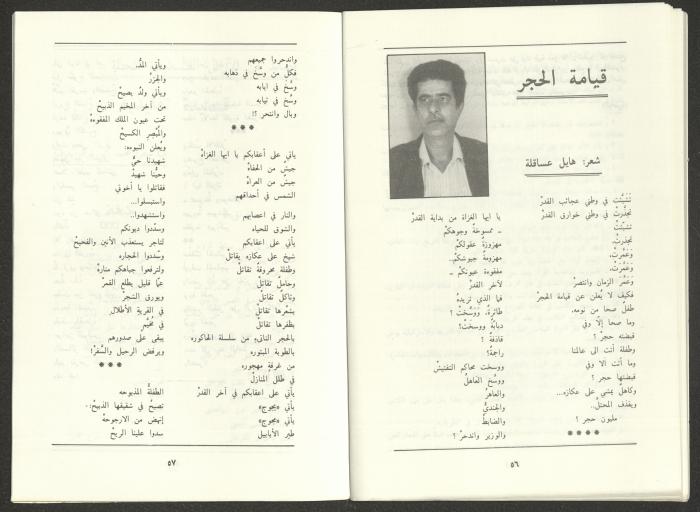 قيامة الحجر
شعر: هايل عساقلة
تَشَبَّثَتْ في وطني عجائب القدرْ
تجذّرتْ في وطني خوارق القدرْ
تشبّثتْ
تجذرتْ،
وَعَمَّرتْ،
وَعَمَّرَتْ،
وَعَمَّرَ الزمان وانتصرْ
فكيف لا يُعلن عن قيامة الحجرْ
طفلٌ صحا من نومه.
وما صحا إلّا وفي
قبضته حجرْ ؟
وطفلة أتت الى عالمنا
وما أتت الا وفي
قبضتها حجر ؟
وكاهلٌ يمشي على عكازه...
ويقذف المحتلَّ..
مليون حجر ؟
****
يا ايها الغزاة من بداية القدرْ
ـ ممسوخةٌ وجوهكمْ
مهزوزةٌ عقولكمْ
مهزومةٌ جيوشكمْ..
مفقوءة عيونكمْ ـ
لآخر القدرْ
فما الذي تريدهُ
طائرةٌ، وَوسّختْ ؟
دبابةٌ ووسخَتْ؟
قاذفةٌ ؟
راجمةٌ؟
ووسخت محاكم التفتيشْ
ووسَّخ العَاهلُ
والعاهرُ
والجنديُّ
والضابطُ
والوزير واندحرْ ؟
٥٦
واندحروا جميعهم
فكلُّ من وسَّخَ في ذهابه
وسَّخ في ايابه
وسَّخ في ثيابه
وبال وانتحر ؟!
***
يأتي على أعقابكم يا ايها الغزاهْ
جيشٌ من الحفاهْ
جيشٌ من العراهْ
الشمس في أحداقهم
والنار في اعصابهم
والشوق للحياه
يأتي على اعقابكم
شيخ على عكازه يقاتلْ
وطفلة محروقةٌ تقاتلْ
وحامل تقاتلْ
وثاكل تقاتلْ
بشَعْرها تقاتلْ
بظفرها تقاتلْ
بالحجر الناتئ من سلسلة الحاكوره
بالطوبة المبتوره
من غرفةٍ مهجوره
في طلل المنازلْ
يأتي على اعقابكم في آخر القدرْ
يأتي «يجوج»
يأتي «مجوج»
طير الأبابيل
ويأتي المدُّ.
والجزرُ
ويأتي ولدٌ يصيحْ
من آخر المخيم الذبيحْ
تحت عيون الملك المفقوءة
والمُبْصِرِ الكسيحْ
ويُعلن النبوءه:
شهيدنا حيٌّ
وحيّنا شهيدْ
فقاتلوا يا أخوتي
واستبسلوا...
واستشهدوا..
وسدّدوا ديونكم
لتاجر يستعذب الأنين والفحيحْ
وسّددوا الحجاره
ولترفعوا جباهكم منارةْ
عمّا قليل يطلع القمرْ
ويورق الشجرْ
في القرية الأطلالِ
في مُخيَّمٍ
يبقى على صدورهم
ويرفض الرحيل والسَّفرْ!
***
الطفلةُ المذبوحه
تصيحُ في شقيقها الذبيحْ:
إنهض من الارجوحهْ
سدوا علينا الريحْ
٥٧